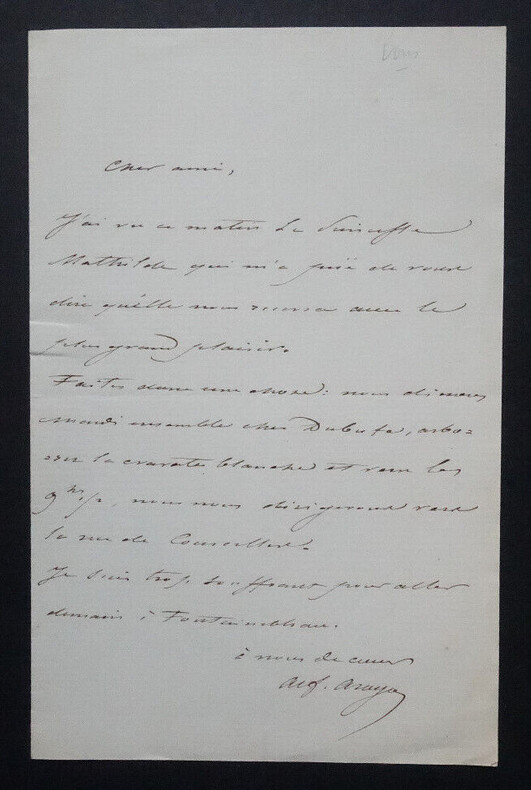 Cher ami,
J'ai vu ce matin la Princesse
Mathilde qui m'a prié de vous
dire qu'elle nous recevra avec le
plus grand plaisir.
Faites donc une chose: nous dinerons
mardi ensemble chez Dubufe, arbo=
rer la cravate blanche et vers les
9h 1/2, nous nous dirigerons vers
la rue de Courcelles.
Je suis trop souffrant pour aller
demain à Fontainebleau.
à vous de cœur
Alf. Arago